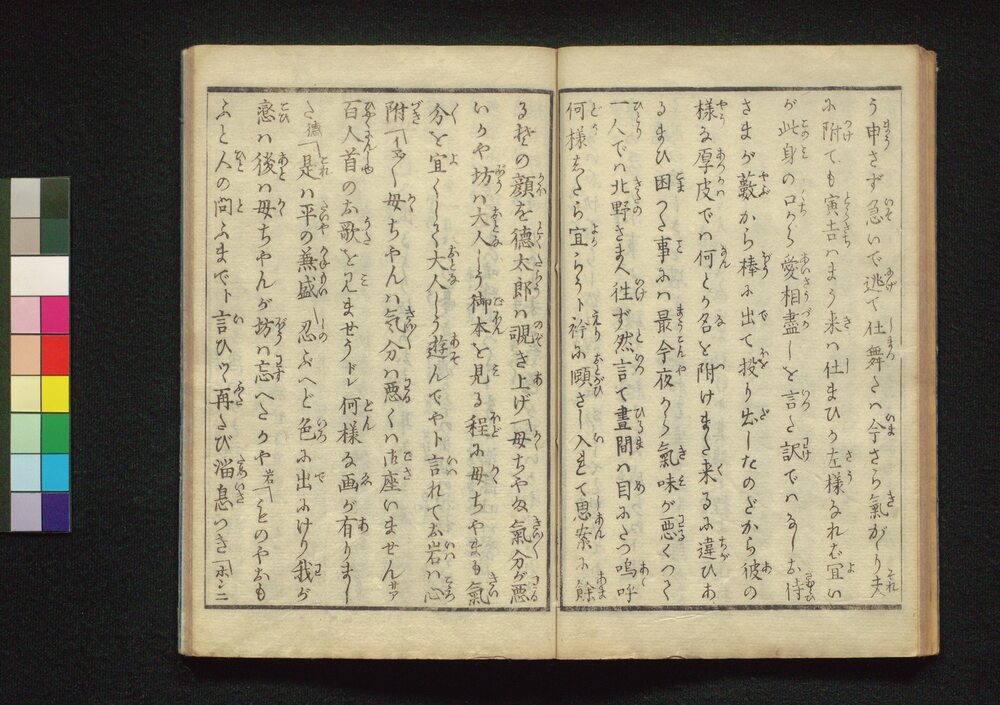 う申さず急いで逃て仕舞たは今さら氣がゝり夫
に附ても寅吉はまう来は仕まひか左様なれば宜い
が此身の口から愛相盡しを言た訳ではなしお侍
さまが藪から棒に出て授り出したのだから彼の
様な厚皮では何とか名を附けまた来るに違ひあ
るまひ困つた事には最今夜から氣味が悪くつて
一人では北野さまへ往ず然言て晝間は目にたつ嗚呼
何様したら宜らうト衿に頤さし入れて思案に餘
る岩の顔を徳太郎は覗き上げ「母ちやま氣分が悪
いかや坊は大人しう御本を見る程に母ちやまも氣
分を宜くしてく大人しう遊んでやト言れてお岩は心
附「イエ〳〵母ちやんは気分は悪くは御座いませんサア
百人首のお歌を見ませうドレ何様な画が有りまし
た 徳「是は平の兼盛 忍ぶへど色に出にけり我が
戀は後は母ちやんが坊は忘へたかや 岩「ものやおも
ふと人の問ふまでト言ひツヽ再たび溜息つき「ホンニ